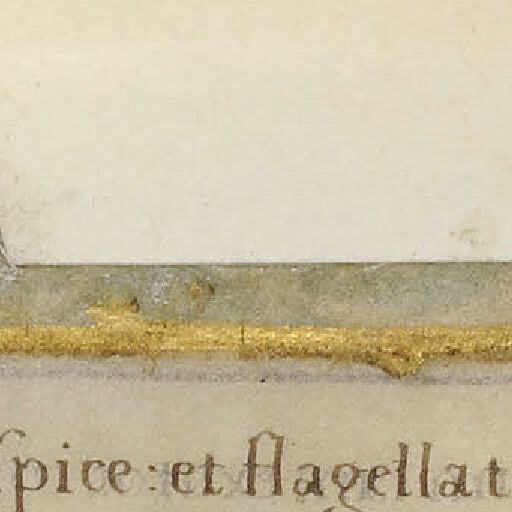 ſpice: et flagellat